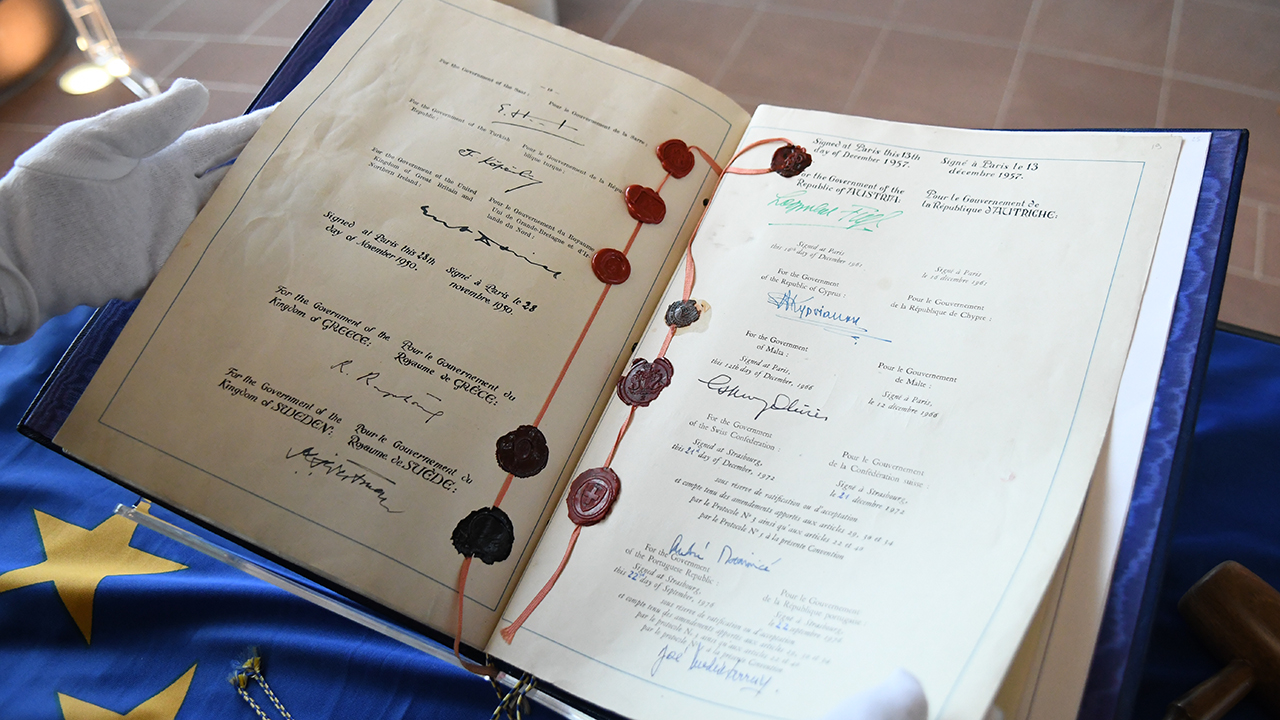 — 18 —
For the Government of the Saar :
Pour le Gouvernement de la Sarre :
For the Government of the Turkish
Republic :
Pour le Gouvernement de la Répu-
blique turque :
For the Government of the United
Kingdom of Great Britain and
Northern Ireland :
Pour le Gouvernement du Royaume
Uni de Grande-Bretagne et d'Ir
lande du Nord :
Signed at Paris this 28th
day of November 1950.
Signé à Paris le 28
novembre 1950.
For the Government of the
Kingdom of GREECE:
Pour le Gouvernement du
Royaume de GRÈCE:
For the Government of the
Kingdom of SWEDEN:
Pour le Gouvernement du
Royaume de SUÈDE:
Signed at Paris this 13th
day of December 1957.
Signé à Paris le 13
décembre 1957.
For the Government of the
Republic of AUSTRIA:
Pour le Gouvernement de
la République d'AUTRICHE:
Leopold Figl
Signed at Paris
this 16th day of December 1961
Signé à Paris
le 16 décembre 1961
For the Government
of the Republic of Cyprus :
Pour le Gouvernement
de la République de Chypre :
For the Government
of Malta :
Pour le Gouvernement
de Malte :
Signed at Paris,
this 12th day of December, 1966
Signé à Paris,
le 12 décembre 1966
For the Government
of the Swiss Confederation :
Pour le Gouvernement
de la Confédération suisse :
Signed at Strasbourg,
this 21st day of December, 1972
Signé à Strasbourg,
le 21 décembre 1972
sous réserve de ratification ou d'acceptation
et compte tenu des amendements apportés aux articles 29, 30 et 34
par le Protocole N° 3 ainsi qu'aux articles 22 et 40
par le Protocole N° 5 à la présente Convention
For the Government
of the Portuguese Republic :
Pour le Gouvernement
de la République portugaise :
Signed at Strasbourg,
this 22nd day of September, 1976
Signé à Strasbourg,
le 22 septembre 1976
sous réserve de ratification ou d'acceptation
et compte tenu des amendements apportés aux articles 29, 30 et 34
par le protocole N° 3 ainsi qu'aux articles 22 et 40
par le protocole N° 5 à la présente Convention